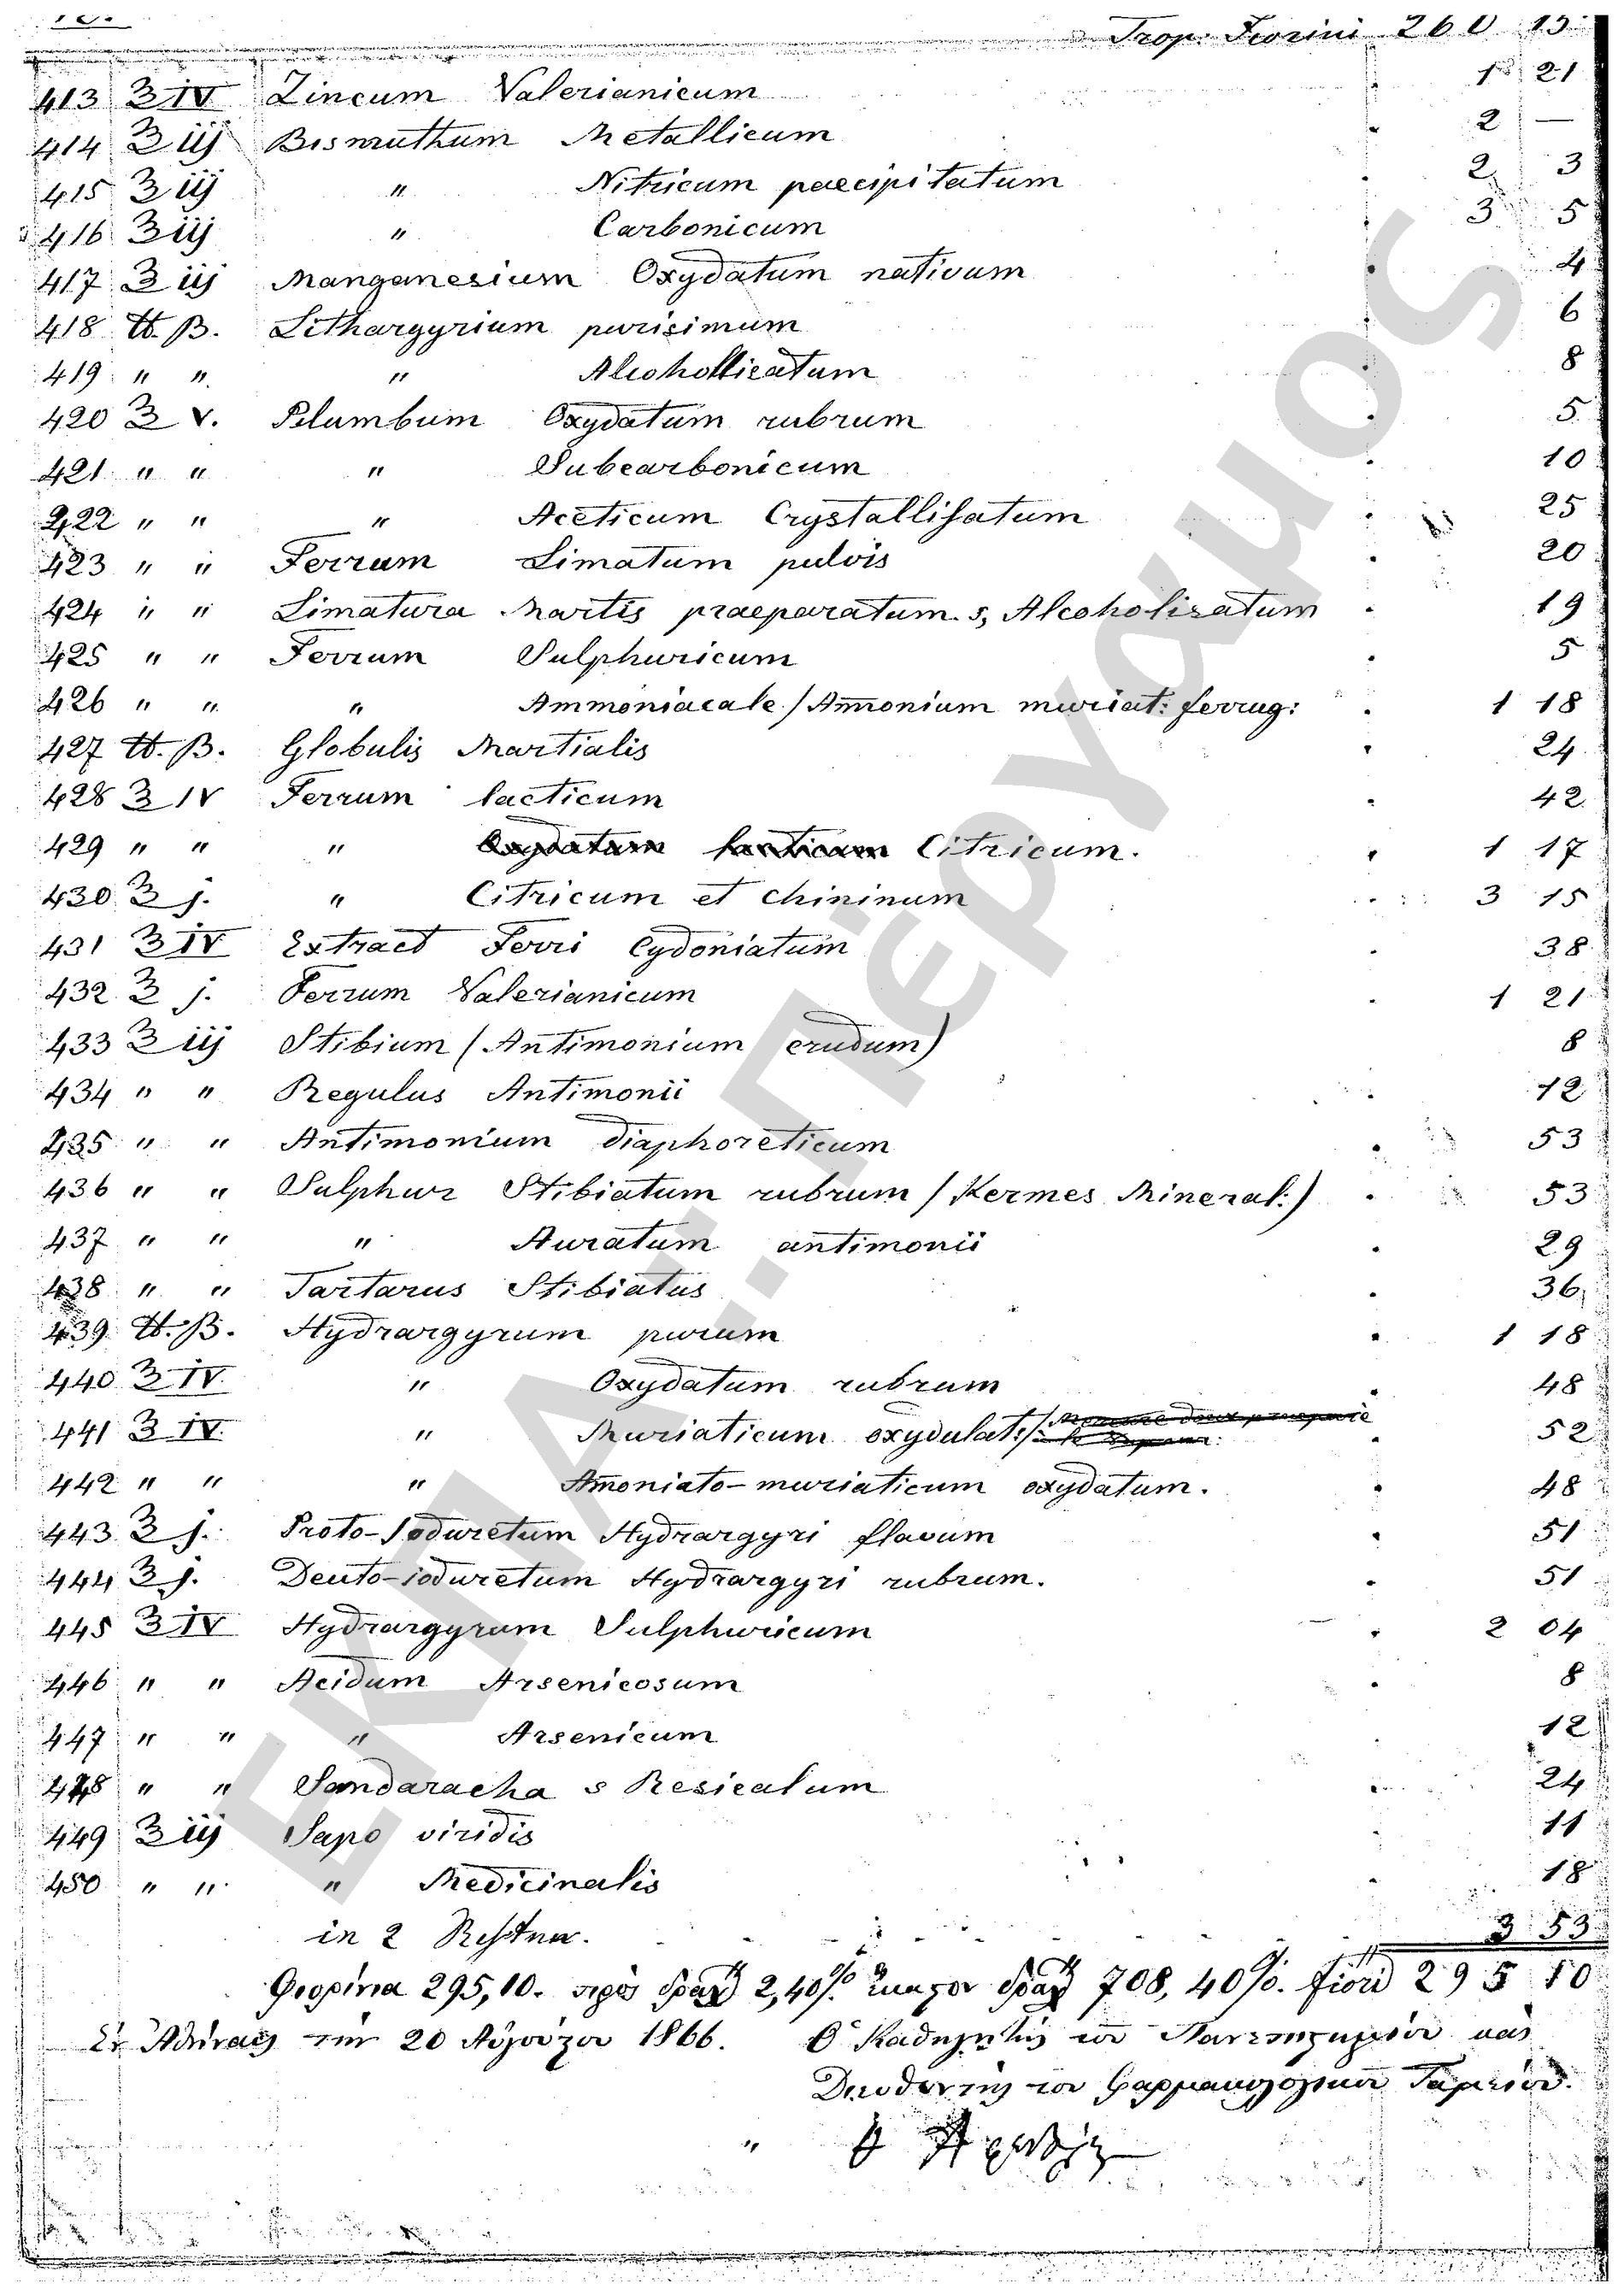 Trop. Fiorini 260 13
413 ʒ IV Zincum Valerianicum 1 21
414 ʒ iij Bismuthum Metallicum 2 —
415 ʒ iij " Nitricum praecipitatum 2 3
416 ʒ iij " Carbonicum 3 5
417 ʒ iij Manganesium Oxydatum nativum 4
418 ℔. β. Lithargyrium purisimum 6
419 " " " Alcohollicatum 8
420 ʒ V. Plumbum Oxydatum rubrum 5
421 " " " Subcarbonicum 10
422 " " " Aceticum Crystallisatum 25
423 " " Ferrum Limatum pulvis 20
424 " " Limatura Martis praeparatum. s, Alcoholisatum 19
425 " " Ferrum Sulphuricum 5
426 " " " Ammoniacale / Am̅onium muriat: ferrug: 1 18
427 ℔. β. Globulis Martialis 24
428 ʒ IV Ferrum lacticum 42
429 " " " Citricum. 1 17
430 ʒ j. " Citricum et Chininum 3 15
431 ʒ IV Extract Ferri Cydoniatum 38
432 ʒ j. Ferrum Valerianicum 1 21
433 ʒ iij Stibium (Antimonium crudum) 8
434 " " Regulus Antimonii 12
435 " " Antimonium diaphoreticum 53
436 " " Sulphur Stibiatum rubrum / Kermes Mineral:) 53
437 " " " Auratum antimonii 29
438 " " Tartarus Stibiatus 36
439 ℔. β. Hydrargyrum purum 1 18
440 ʒ IV. " Oxydatum rubrum 48
441 ʒ IV. " Muriaticum oxydulat: 52
442 " " " Am̅oniato-muriaticum oxydatum. 48
443 ʒ j. Proto-Joduretum Hydrargyri flavum 51
444 ʒ j. Deuto-ioduretum Hydrargyri rubrum. 51
445 ʒ IV Hydrargyrum Sulphuricum 2 04
446 " " Acidum Arsenicosum 8
447 " " " Arsenicum 12
448 " " Sandaracha s Resicatum 24
449 ʒ iij Sapo viridis 11
450 " " " Medicinalis 18
in 2 3 53
Φιορίνια 295,10. πρὸς δραχ 2,40% δραχ 708, 40%. fiori 295 10
Ἐν Ἀθήναις τῇ 20 Αὐγούστου 1866. Ὁ Καθηγητὴς τοῦ Πανεπιστημίου καὶ
Διευθυντὴς τοῦ Φαρμακολογικοῦ Ταμείου.
"
ΕΚΠΑ...Πέργαμος